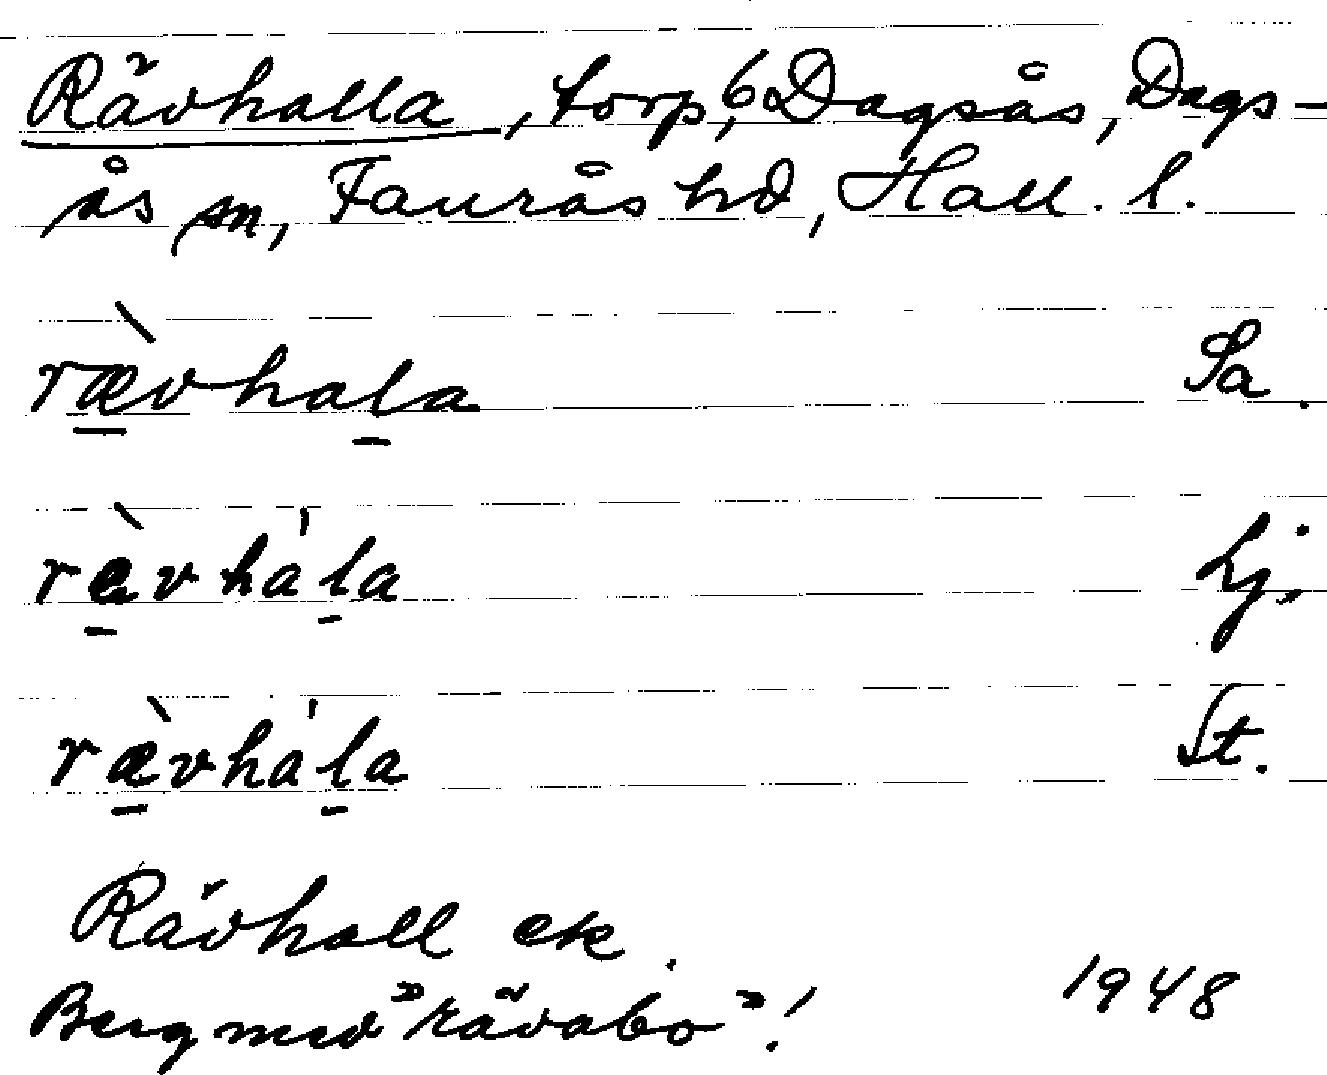 Rävhalla, torp, 6 Dagsås, Dags-
ås sn, Faurås hd, Hall. l.
ræ̀vhala Sa.
rævhála Lj.
rævhála St.
Rävhall ek.
Berg med "rävabo"! 1948